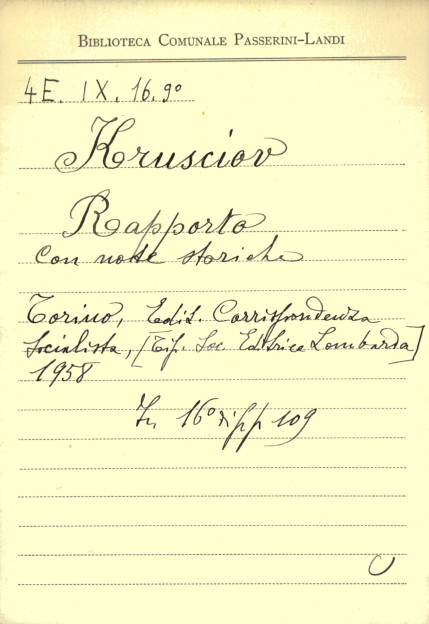 BIBLIOTECA COMUNALE PASSERINI-LANDI
4E. IX. 16.9º
Krusciov
Rapporto
con note storiche
Torino, Edit. Corrispondenza
Socialista, [Tip. Soc. Editrice Lombarda]
1958
In 16º di pp 109